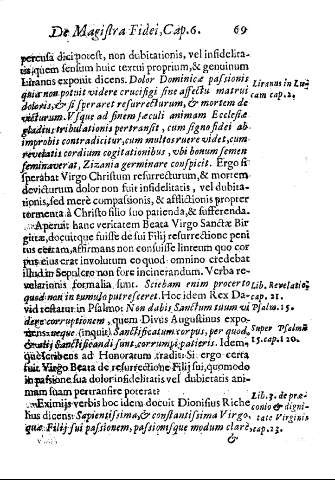 De Magistra Fidei, Cap. 6. 69
percusa dici potest, non dubitationis, vel infidelita-
tis, quem sensum huic textui proprium, & genuinum
Liranus exponit dicens. Dolor Dominicæ passionis
quia non potuit videre crucifigi sine affectu matrui
doloris, & si speraret resurrecturum, & mortem de
victurum. Vsque ad finem sæculi animam Ecclesiæ
gladius tribulationis pertransit, cum signo fidei ab
improbis contradicitur, cum multos ruere videt, cum
revelatis cordium cogitationibus, vbi bonum semen
seminaverat, Zizania germinare conspicit. Ergo si
sperabat Virgo Christum resurrecturum, & mortem
devicturum dolor non fuit infidelitatis, vel dubita-
tionis, sed merè compassionis, & afflictionis propter
tormenta à Christo filio suo patienda, & sufferenda.
Aperuit hanc veritatem Beata Virgo Sanctæ Bir
gittæ, docuitque fuisse de sui Filij resurrectione peni
tus certam, affirmans non consuisse linteum quo cor
pus eius erat involutum eo quod omnino credebat
illud in Sepulcro non fore incinerandum. Verba re-
velationis formalia sunt. Sciebam enim pro certo
quod non in tumulo putresceret. Hoc idem Rex Da-
vid testatur in Psalmo: Non dabis Sanctum tuum vi
dere corruptionem, quem Divus Augustinus expo-
nens neque (inquit) Sanctificatum corpus, per quod,
& alij Sanctificandi sunt, corrumpi patieris. Idem,
que scribens ad Honoratum tradit: Si ergo certa
fuit Virgo Beata de resurrectione Filij sui, quomodo
in passione sua dolor infidelitatis vel dubietatis ani-
mam suam pertransire poterat?
Eximijs verbis hoc idem docuit Dionisius Riche
lius dicens: Sapientissima, & constantissima Virgo,
quæ Filij sui passionem, passionisque modum clarè,
&
Liranus in Lu
cam cap. 2.
Lib. Revelatio
cap. 21.
Psalm. 15.
Super Psalmũ
15. cap. 120.
Lib. 3. de præ
conio & digni
tate Virginis
cap. 23.